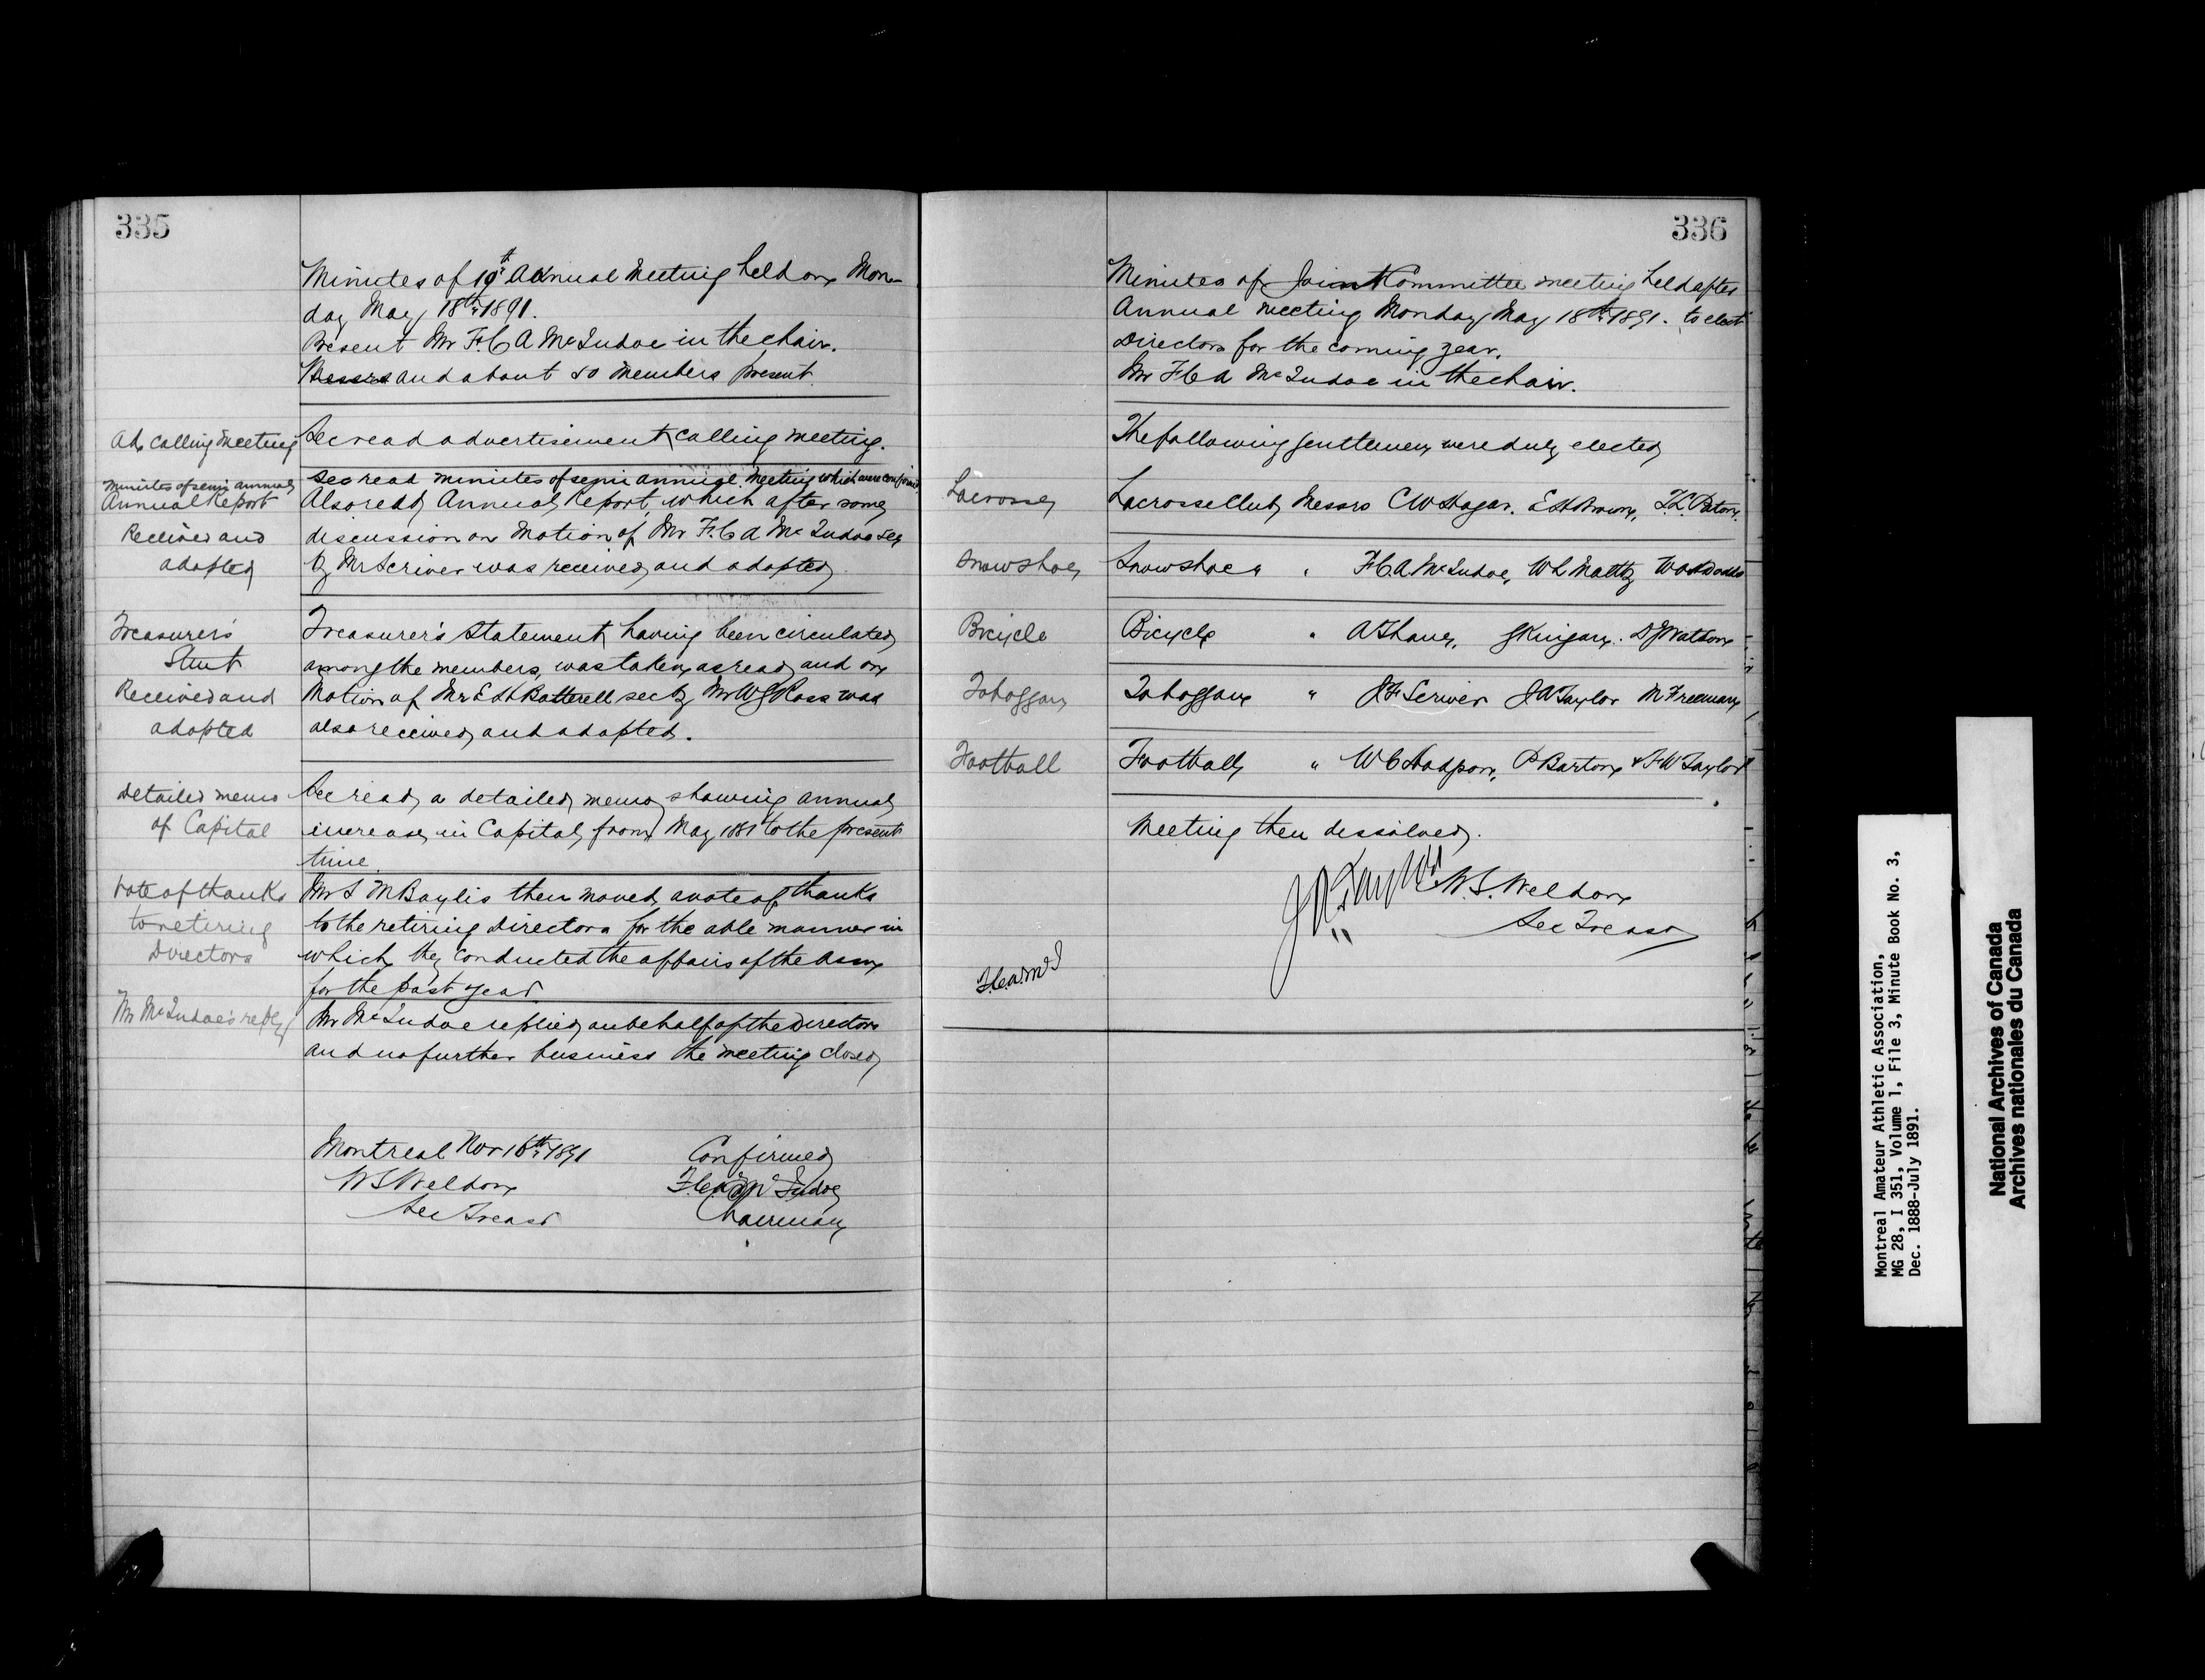 335
Minutes of 10th Annual Meeting held on Mon
day May 18th 1891.
Present Mr F. C A McIndoe in the chair.
Messrs and about 50 Members present.
Ad calling Meeting
Sec read advertisement calling meeting.
Minutes of semi annual
Sec read minutes of semi annual Meeting which were confirmed
Annual Report
Also read Annual Report, which after some
Received and
discussion on Motion of Mr F. C A McIndoe sec
adopted
by Mr Scriver was received and adopted
Treasurer's
Treasurer's Statement having been circulated
Stmt
among the members, was taken as read and on
Received and
Motion of Mr E H Botterell sec by Mr W G Ross was
adopted
also received and adopted.
Detailed memo
Sec read a detailed memo showing annual
of Capital
increase in Capital from May 1881 to the present
time
Vote of thanks
Mr S M Baylis then moved a vote of thanks
to retiring
to the retiring directors for the able manner in
Directors
which they conducted the affairs of the Assn
for the past year
Mr McIndoe's reply
Mr McIndoe replied on behalf of the Directors
and no further business the meeting closed
Montreal Nov 16th 1891
Confirmed
W S Weldon
F. C. A. McIndoe
Sec Treasr
Chairman
336
Minutes of Joint Committee meeting held after
Annual Meeting Monday May 18th 1891. to elect
Directors for the coming year.
Mr F C A McIndoe in the chair.
The following gentlemen were duly elected
Lacrosse
Lacrosse Club Messrs C W Hagar. E H Brown, T. L. Paton.
Snowshoe
Snowshoe " " F. C. A McIndoe, W L Maltby
Bicycle
Bicycle " A T Lane, D J Watson
Toboggan
Toboggan " J F Scriver J W Taylor M Freeman
Football
Football " W C Hodgson, P Barton & F W Taylor
Meeting then dissolved.
W. S. Weldon
Sec Treasr
F.C.A.McI
Montreal Amateur Athletic Association,
MG 28, I 351, Volume 1, File 3, Minute Book No. 3,
Dec. 1888-July 1891.
National Archives of Canada
Archives nationales du Canada